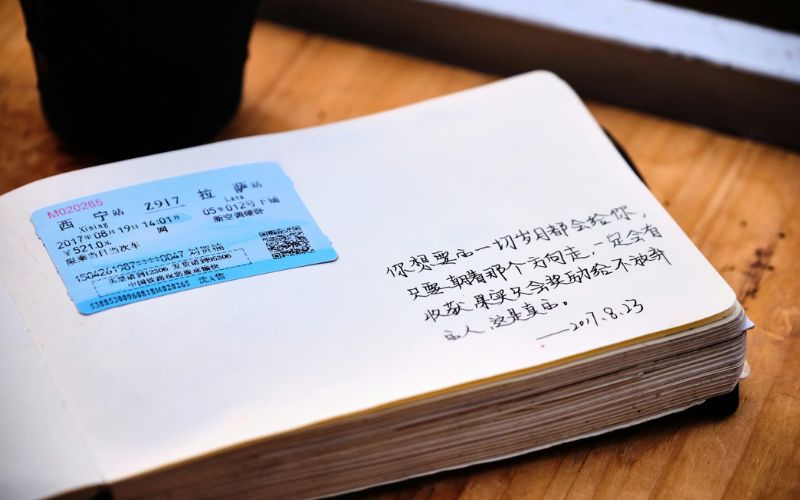 M020265
西 宁站 Z917 拉 萨站
Xining Lasa
2017年08月19日14:01开 05车012号下铺
¥521.0元 网 新空调硬卧
限乘当日当次车
1504261987****0047
买票请到12306 发货请到95306
中国铁路祝您旅途愉快
你想要的一切岁月都会给你,
只要朝着那个方向走,一定会有
收获,果实只会奖励给不放弃
的人,这是真的。
——2017.8.23